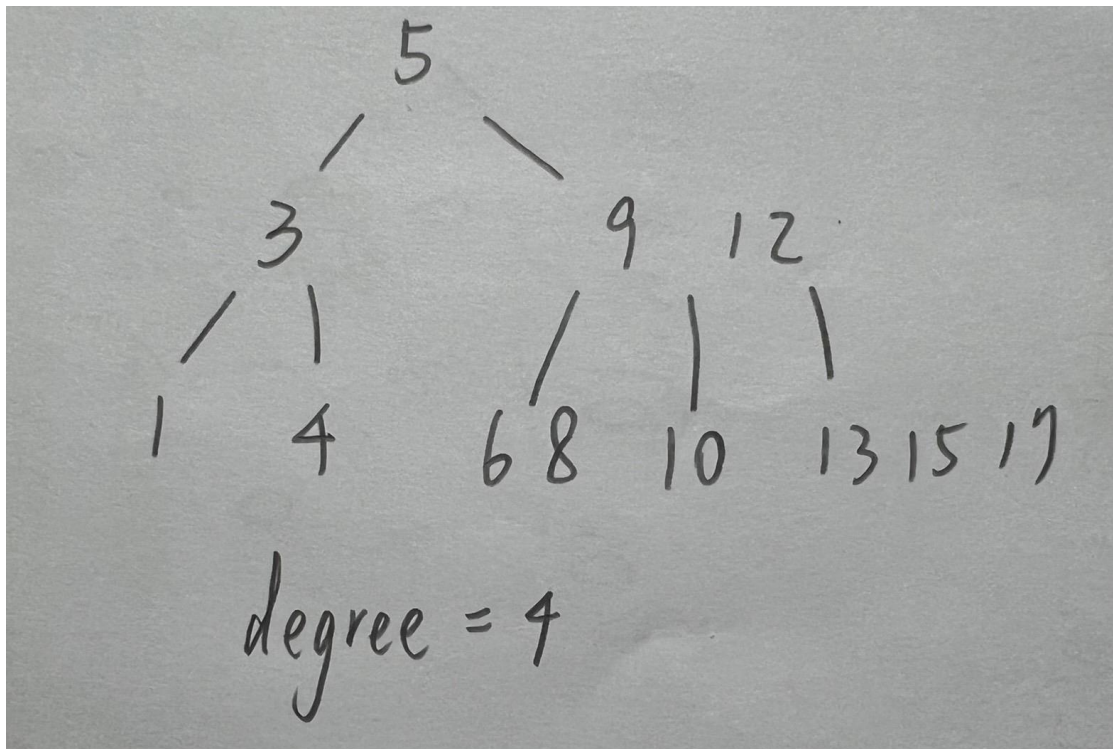 5
3 9 12
1 4 6 8 10 13 15 17
degree = 4